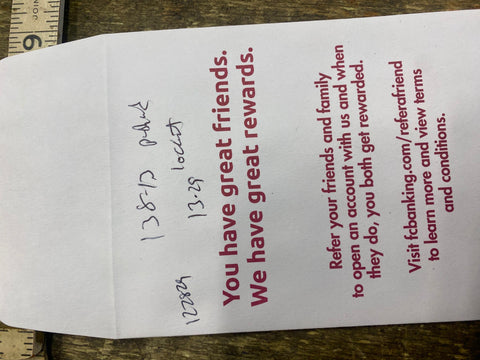 138-13
122829 13-29 locket
You have great friends.
We have great rewards.
Refer your friends and family
to open an account with us and when
they do, you both get rewarded.
Visit fcbanking.com/referafriend
to learn more and view terms
and conditions.
9
JOIN